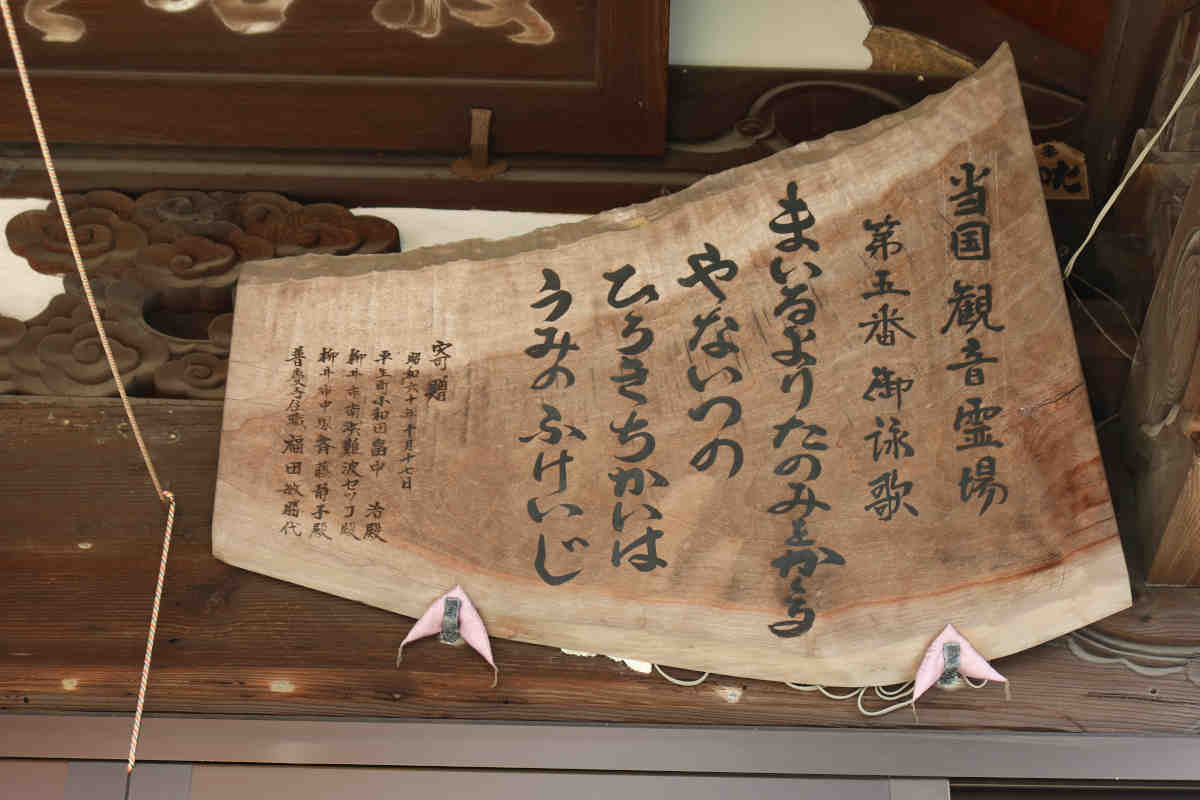 当国観音霊場
第五番御詠歌
まいるよりたのみをかくる
やないつの
ひろきちかいは
うみのふけいじ
寄贈
昭和六十年十月十七日
平生町小和田畠中 浩殿
柳井市南浜難波セツコ殿
柳井市中 齊藤静子殿
普慶寺住職 福田敏 代